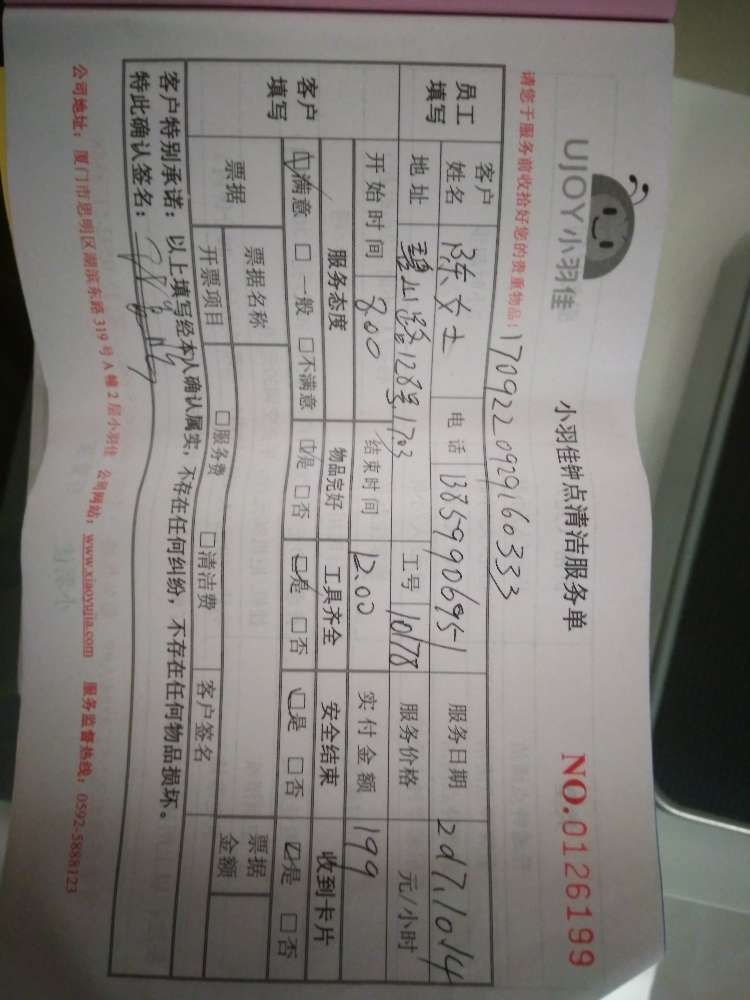 UJOY小羽佳
小羽佳钟点清洁服务单
NO.0126199
请您于服务前收拾好您的贵重物品!
1709220929160333
员工填写
客户姓名 陈女士 电话 13859906951 服务日期 2017.10.14
地址 碧山路128号1703 工号 10178 服务价格 元/小时
开始时间 8.00 结束时间 12.00 实付金额 199
客户填写
服务态度 物品完好 工具齐全 安全结束 收到卡片
☑满意 □一般 □不满意 ☑是 □否 ☑是 □否 ☑是 □否 ☑是 □否
票据 票据名称 票据金额
开票项目 □服务费 □清洁费 客户签名
客户特别承诺：以上填写经本人确认属实，不存在任何纠纷，不存在任何物品损坏。
特此确认签名：
公司地址：厦门市思明区湖滨东路319号A幢2层小羽佳 公司网站：www.xiaoyujia.com 服务监督热线：0592-5888123